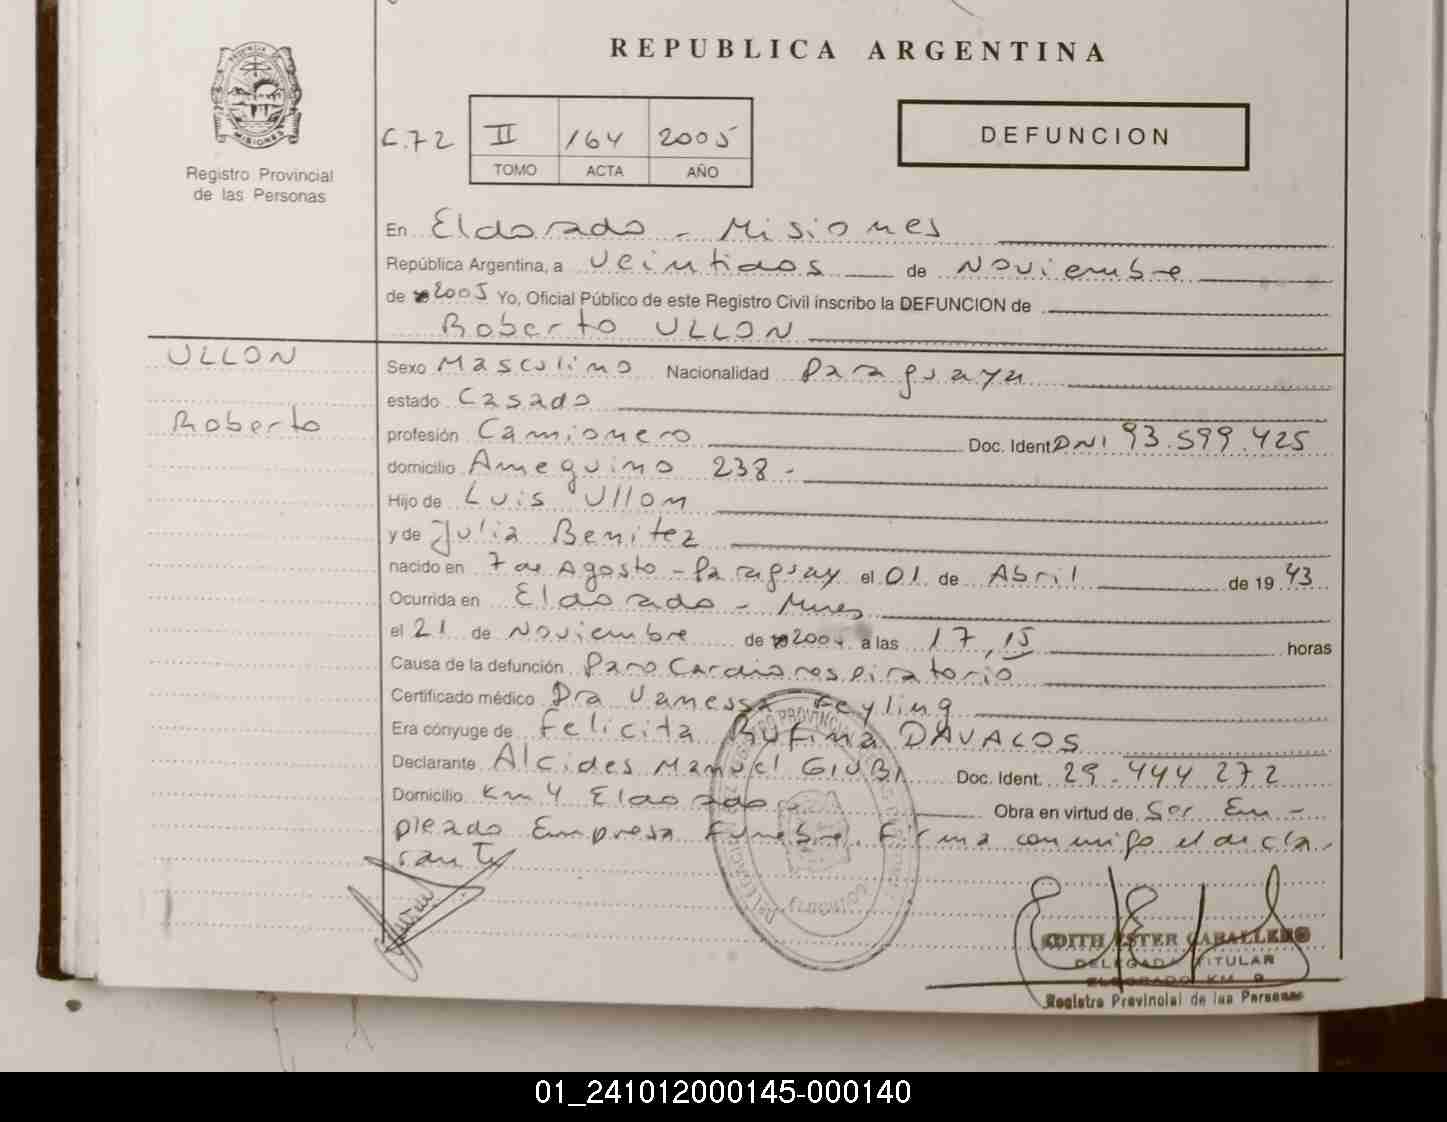 REPUBLICA ARGENTINA
Registro Provincial
de las Personas
C.72 II 164 2005
TOMO ACTA AÑO
DEFUNCION
En Eldorado - Misiones
República Argentina, a veintidos de Noviembre
de 2005 Yo, Oficial Público de este Registro Civil inscribo la DEFUNCION de
Roberto ULLON
ULLON
Roberto
Sexo Masculino Nacionalidad Paraguaya
estado Casado
profesión Camionero Doc. Ident. DNI 93.599.425
domicilio Ameguino 238-
Hijo de Luis Ullon
y de Julia Benitez
nacido en 7 de Agosto - Paraguay el 01 de Abril de 19 43
Ocurrida en Eldorado - Mnes
el 21 de Noviembre de a las 17,15 horas
Causa de la defunción Paro Cardiorespiratorio
Certificado médico Dra Vanessa Feyling
Era cónyuge de Felicita Rufina DAVALOS
Declarante Alcides Manuel GIUBI Doc. Ident. 29.444.272
Domicilio Km 4 Eldorado Obra en virtud de Ser Em-
pleado Empresa Funebre. Firma conmigo el decla-
rante
EDITH ESTER CABALLERO
DELEGADA TITULAR
ELDORADO KM 9
Registro Provincial de las Personas
01_241012000145-000140